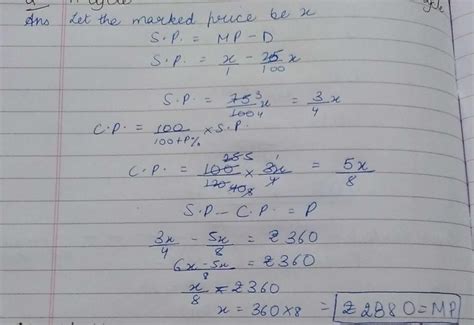 Ans Let the marked price be x
S.P. = MP - D
S.P. = x/1 - 25/100 x
S.P. = 75 3/100 4 x = 3/4 x
C.P. = 100/100+P% × S.P.
C.P. = 100/120 × 3x/4 = 5x/8
S.P - C.P. = P
3x/4 - 5x/8 = ₹360
6x-5x/8 = ₹360
x/8 = ₹360
x = 360×8 = ₹2880=MP